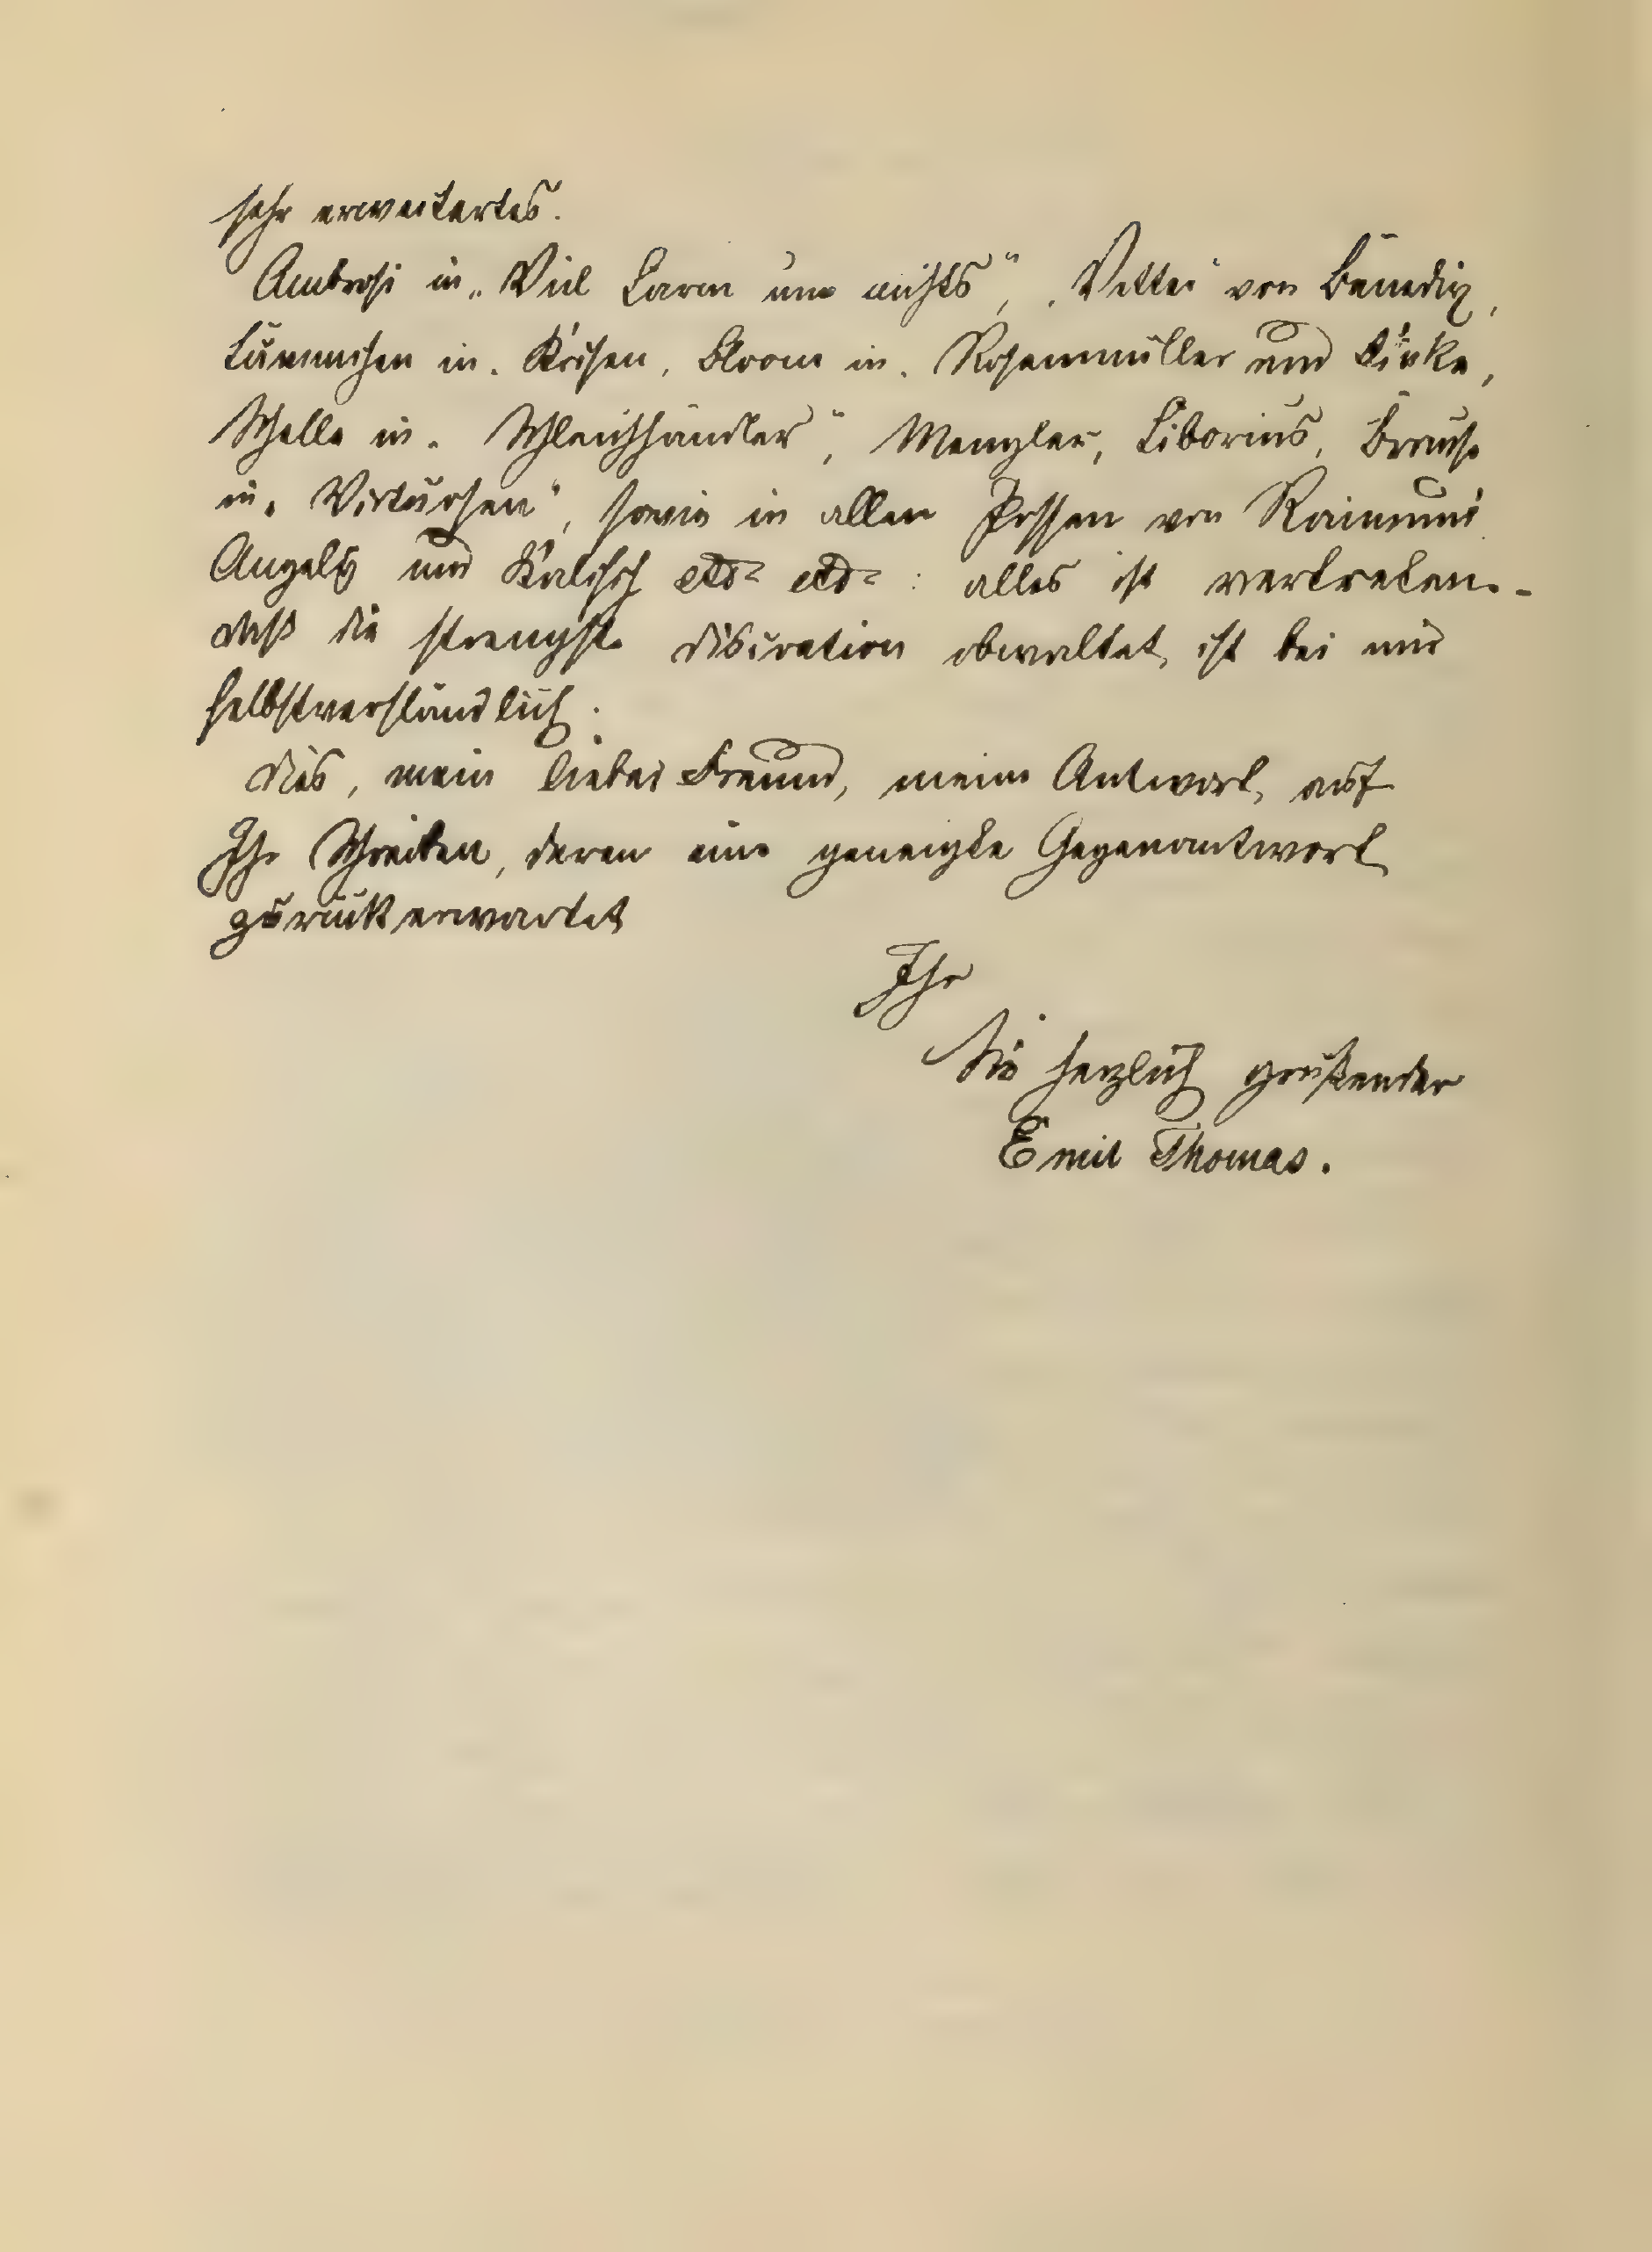 sehr erweitertes.
Ambrosi in „Viel Lärm um nichts“, „Vetter“ von Benedix,
Lämmchen in „Krisen, Bloom in „Rosenmüller und Finke,
Schelle in „Schleichhändler“, Menzler, Liborius, Brause
in „Virtuosen“, sowie in allen Possen von Raimund
Angely und Kalisch etc etc: alles ist vertreten. –
daß die strengste discretion obwaltet, ist bei mir
selbstverständlich.
Dies, mein lieber Freund, meine Antwort, auf
Ihr Schreiben, deren eine geneigte Gegenantwort
zurück erwartet
Ihr
Sie herzlich grüßender
Emil Thomas.